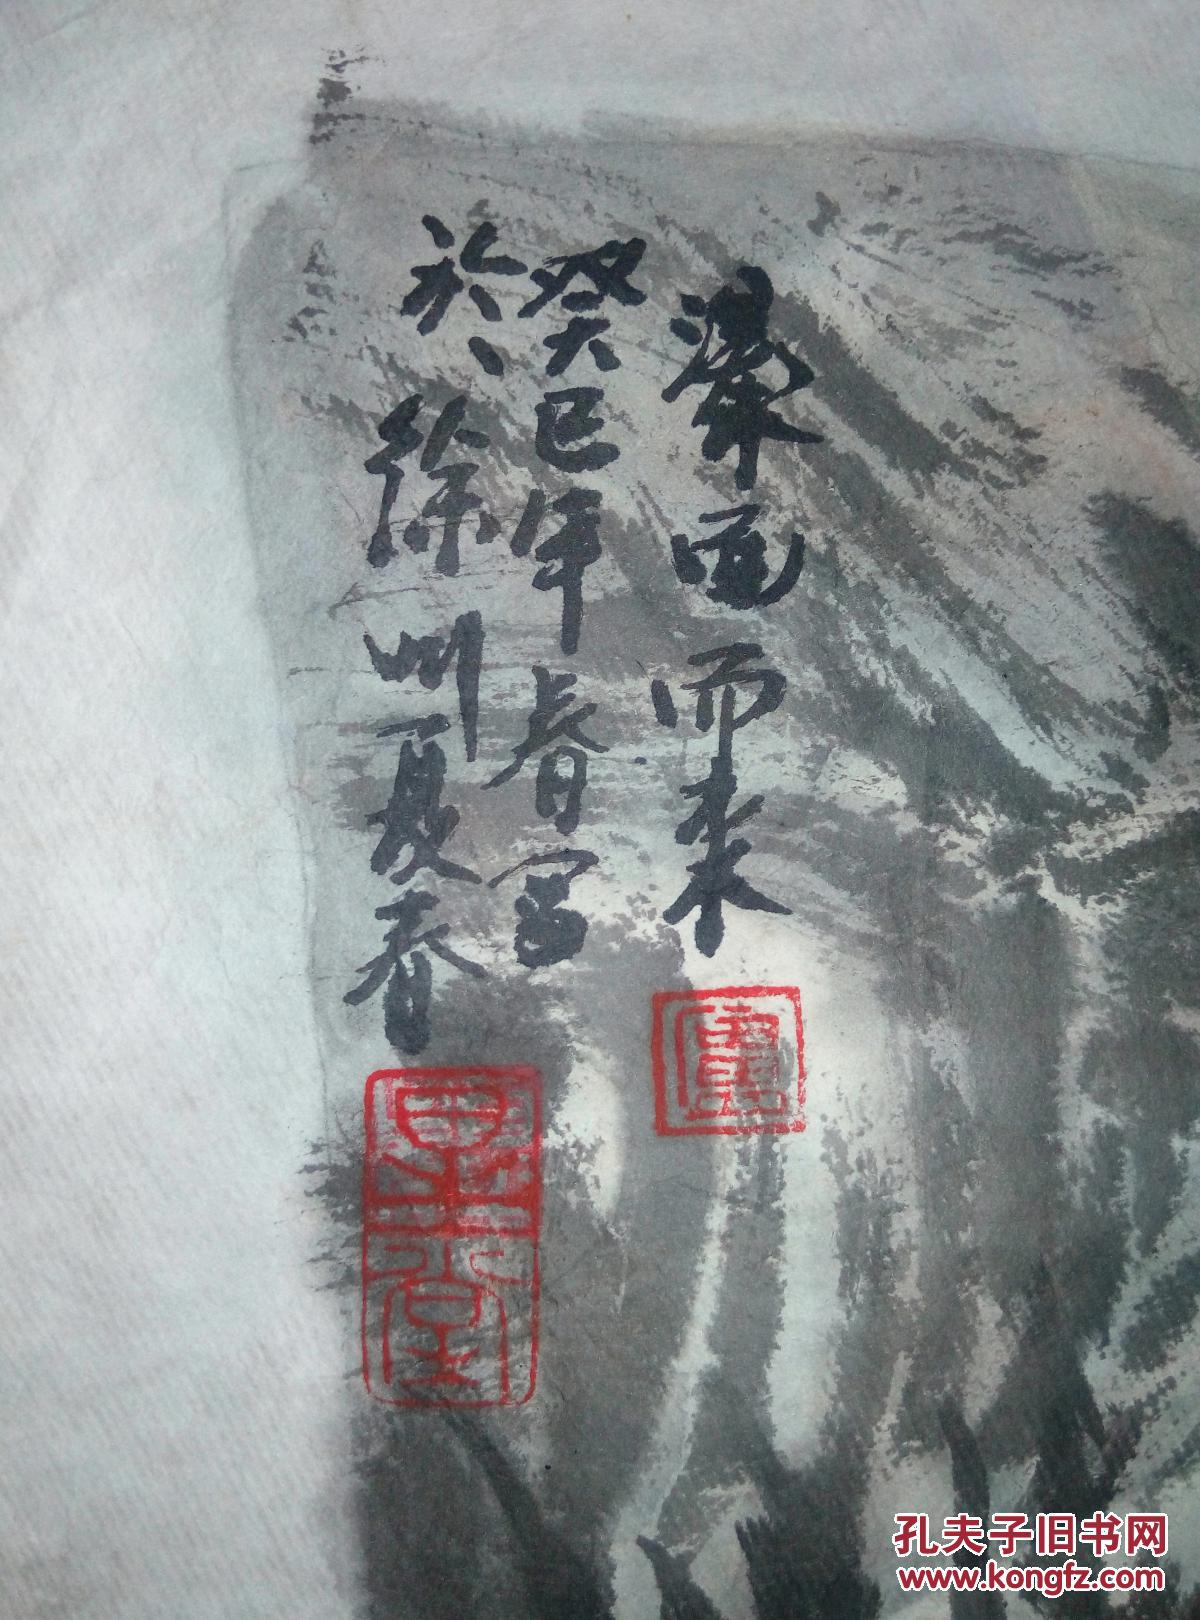 而来
癸巳年春写
於徐州夏春
孔夫子旧书网
www.kongfz.com